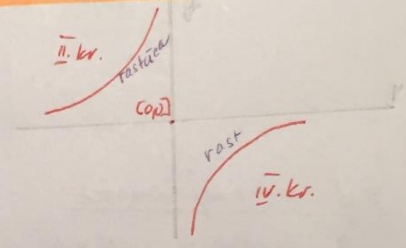 II. kv.
rastúca
[0,0]
rast
IV. kv.